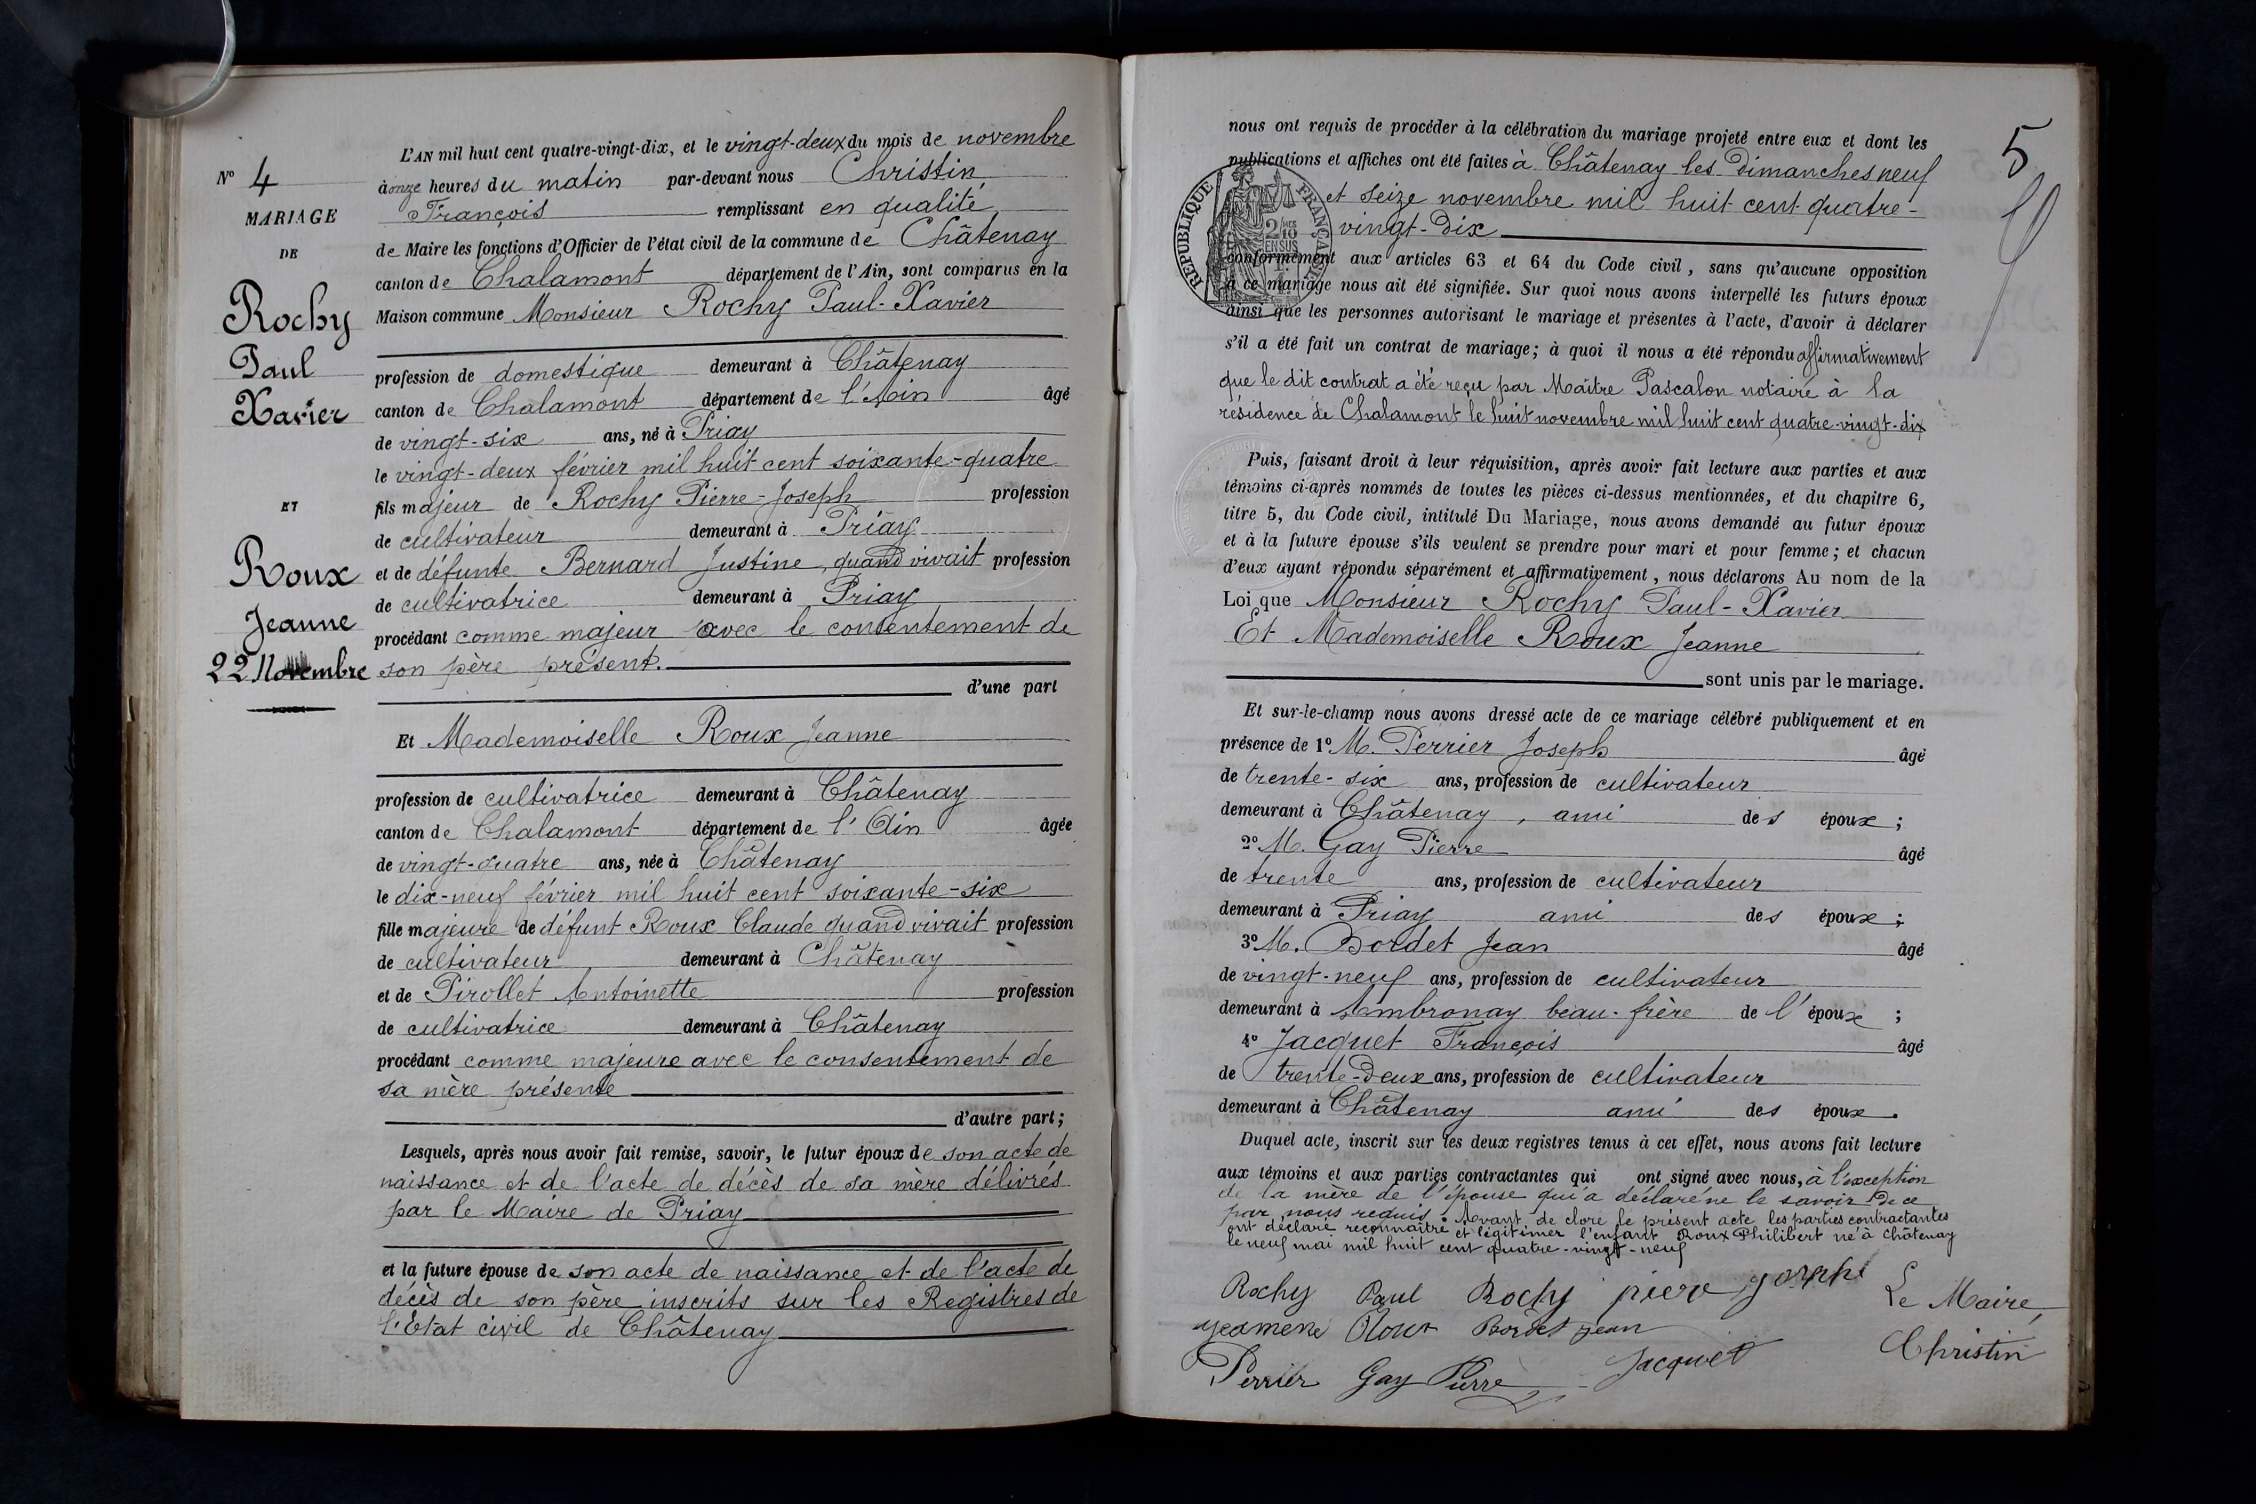 N° 4
MARIAGE
DE
Rochy
Paul
Xavier
ET
Roux
Jeanne
22 Novembre
L'AN mil huit cent quatre-vingt-dix, et le vingt-deux du mois de novembre
à onze heures du matin par-devant nous Christin
François remplissant en qualité
de Maire les fonctions d'Officier de l'état civil de la commune de Châtenay
canton de Chalamont département de l'Ain, sont comparus en la
Maison commune Monsieur Rochy Paul-Xavier
profession de domestique demeurant à Châtenay
canton de Chalamont département de l'Ain âgé
de vingt-six ans, né à Priay
le vingt-deux février mil huit cent soixante-quatre
fils majeur de Rochy Pierre-Joseph profession
de cultivateur demeurant à Priay
et de défunte Bernard Justine, quand vivait profession
de cultivatrice demeurant à Priay
procédant comme majeur avec le consentement de
son père présent.
d'une part
Et Mademoiselle Roux Jeanne
profession de cultivatrice demeurant à Châtenay
canton de Chalamont département de l'Ain âgée
de vingt-quatre ans, née à Châtenay
le dix-neuf février mil huit cent soixante-six
fille majeure de défunt Roux Claude quand vivait profession
de cultivateur demeurant à Châtenay
et de Pirollet Antoinette profession
de cultivatrice demeurant à Châtenay
procédant comme majeure avec le consentement de
sa mère présente
d'autre part;
Lesquels, après nous avoir fait remise, savoir, le futur époux de son acte de
naissance et de l'acte de décès de sa mère délivrés
par le Maire de Priay
et la future épouse de son acte de naissance et de l'acte de
décès de son père inscrits sur les Registres de
l'Etat civil de Châtenay
5
nous ont requis de procéder à la célébration du mariage projeté entre eux et dont les
publications et affiches ont été faites à Châtenay les Dimanches neuf
et seize novembre mil huit cent quatre-
vingt-dix
REPUBLIQUE FRANÇAISE
conformément aux articles 63 et 64 du Code civil, sans qu'aucune opposition
à ce mariage nous ait été signifiée. Sur quoi nous avons interpellé les futurs époux
ainsi que les personnes autorisant le mariage et présentes à l'acte, d'avoir à déclarer
s'il a été fait un contrat de mariage; à quoi il nous a été répondu affirmativement
que le dit contrat a été reçu par Maître Pascalon notaire à la
résidence de Chalamont le huit novembre mil huit cent quatre-vingt-dix
Puis, faisant droit à leur réquisition, après avoir fait lecture aux parties et aux
témoins ci-après nommés de toutes les pièces ci-dessus mentionnées, et du chapitre 6,
titre 5, du Code civil, intitulé Du Mariage, nous avons demandé au futur époux
et à la future épouse s'ils veulent se prendre pour mari et pour femme; et chacun
d'eux ayant répondu séparément et affirmativement, nous déclarons Au nom de la
Loi que Monsieur Rochy Paul-Xavier
Et Mademoiselle Roux Jeanne
sont unis par le mariage.
Et sur-le-champ nous avons dressé acte de ce mariage célébré publiquement et en
présence de 1° M. Perrier Joseph âgé
de trente-six ans, profession de cultivateur
demeurant à Châtenay, ami des époux;
2° M. Gay Pierre âgé
de trente ans, profession de cultivateur
demeurant à Priay ami des époux;
3° M. Bordet Jean âgé
de vingt-neuf ans, profession de cultivateur
demeurant à Ambronay beau-frère de l'époux;
4° Jacquet François âgé
de trente-deux ans, profession de cultivateur
demeurant à Châtenay ami des époux.
Duquel acte, inscrit sur les deux registres tenus à cet effet, nous avons fait lecture
aux témoins et aux parties contractantes qui ont signé avec nous, à l'exception
de la mère de l'épouse qui a déclaré ne le savoir De ce
par nous requis. Avant de clore le présent acte les parties contractantes
ont déclaré reconnaître et légitimer l'enfant Roux Philibert né à Châtenay
le neuf mai mil huit cent quatre-vingt-neuf
Rochy Paul Rochy piere joseph Le Maire,
Roux Bordet jean
Christin
Perrier Gay Pierre Jacquet